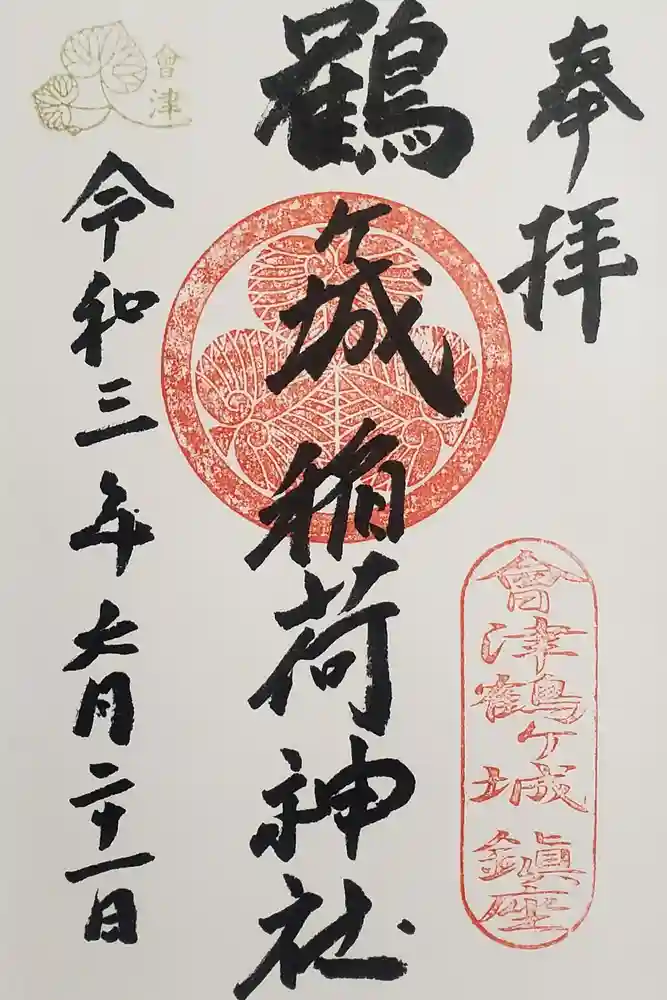 奉拝
會津鶴ヶ城鎮座
鶴ヶ城稲荷神社
會津
令和三年六月二十一日